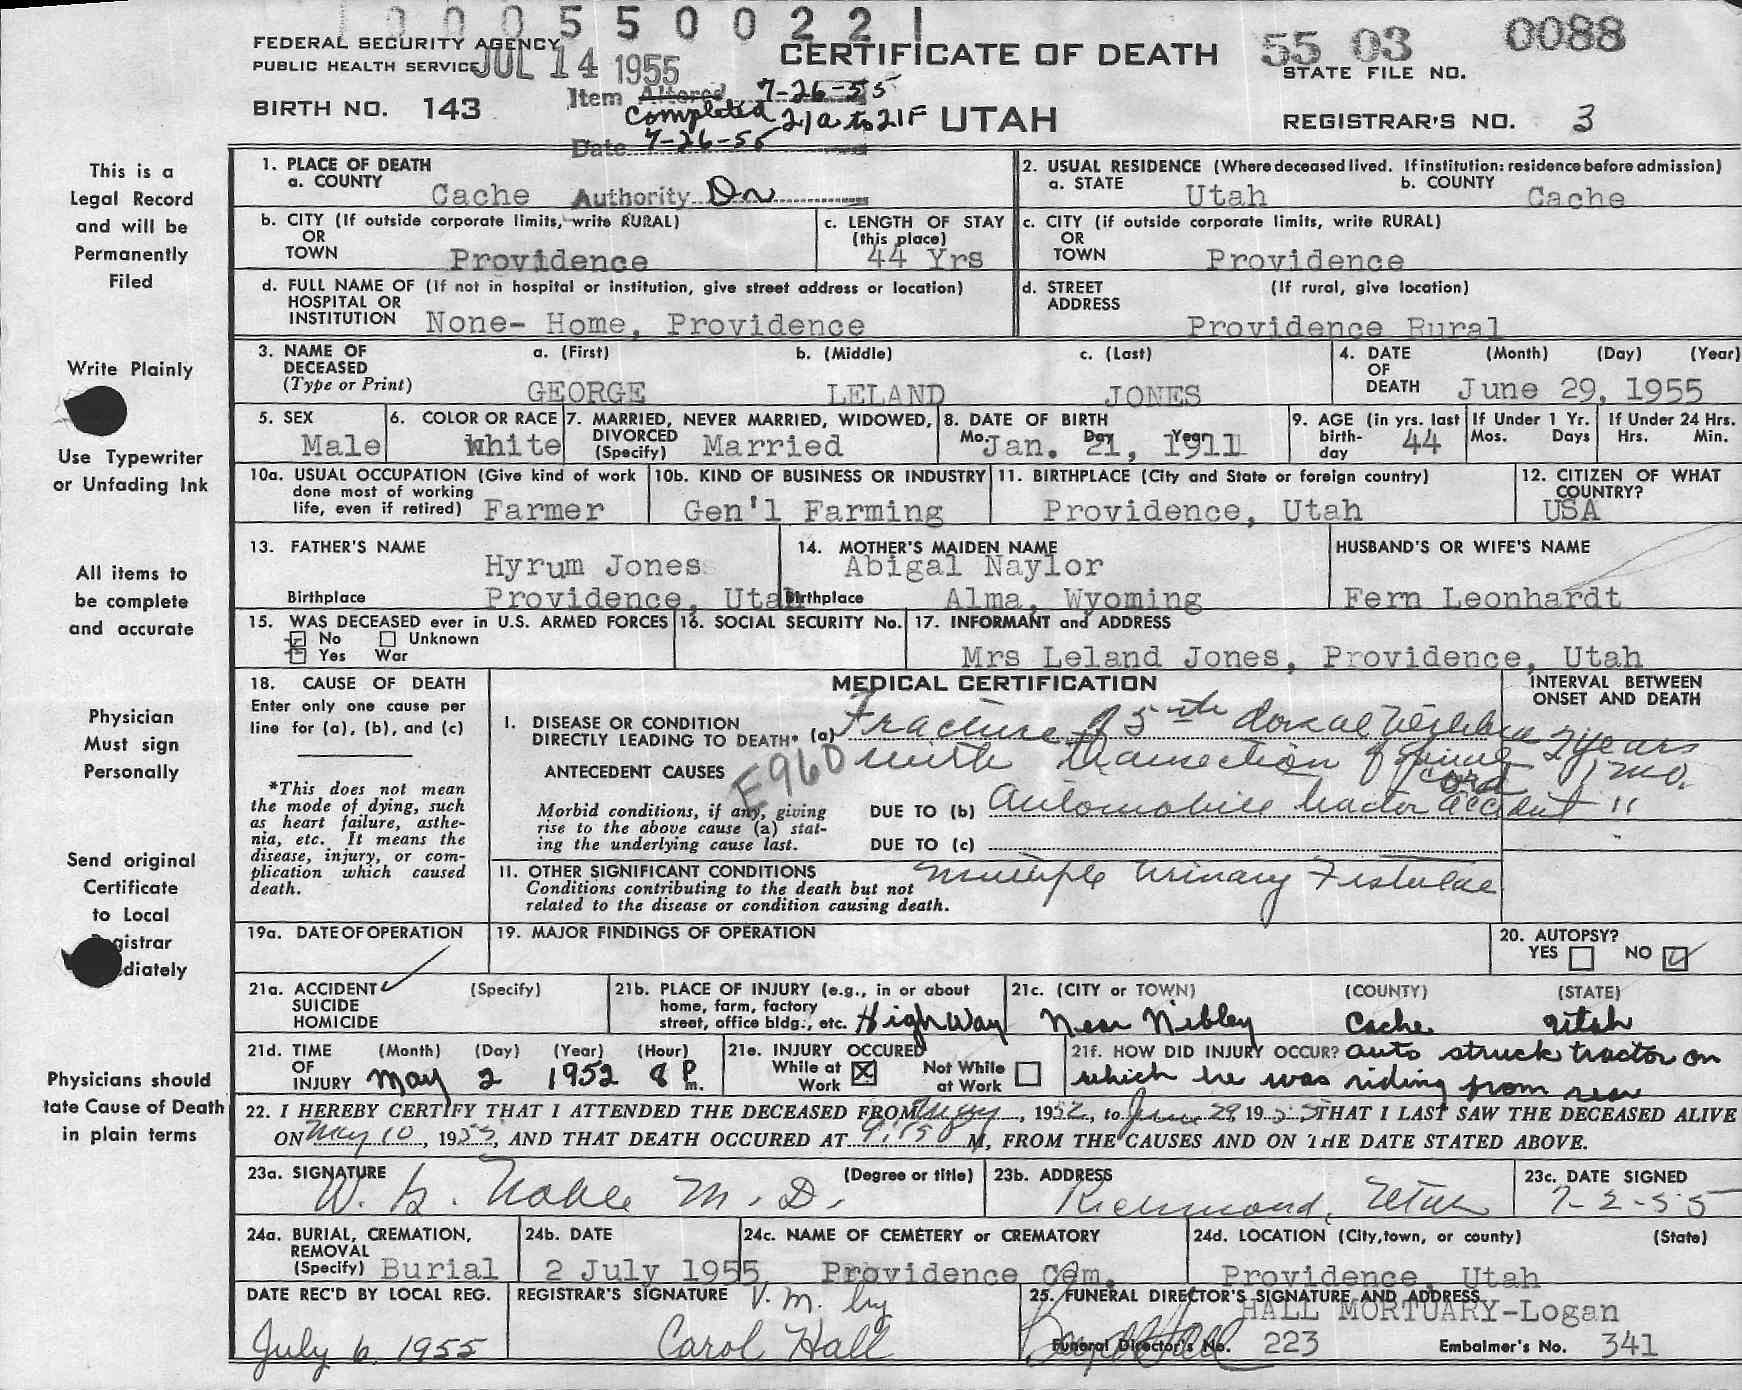 0 0 0 5 5 0 0 2 2 1
FEDERAL SECURITY AGENCY
PUBLIC HEALTH SERVICE
JUL 14 1955
CERTIFICATE OF DEATH
55 03 0088
STATE FILE NO.
BIRTH NO. 143
Item Altered 7-26-55
Completed 21a to 21F
Date 7-26-55
UTAH
REGISTRAR'S NO. 3
This is a
Legal Record
and will be
Permanently
Filed
Write Plainly
Use Typewriter
or Unfading Ink
All items to
be complete
and accurate
Physician
Must sign
Personally
Send original
Certificate
to Local
gistrar
diately
Physicians should
tate Cause of Death
in plain terms
1. PLACE OF DEATH
a. COUNTY Cache Authority Dr
2. USUAL RESIDENCE (Where deceased lived. If institution: residence before admission)
a. STATE Utah b. COUNTY Cache
b. CITY (If outside corporate limits, write RURAL)
OR
TOWN Providence
c. LENGTH OF STAY
(this place)
44 Yrs
c. CITY (if outside corporate limits, write RURAL)
OR
TOWN Providence
d. FULL NAME OF (If not in hospital or institution, give street address or location)
HOSPITAL OR
INSTITUTION None- Home, Providence
d. STREET (If rural, give location)
ADDRESS
Providence Rural
3. NAME OF a. (First) b. (Middle) c. (Last)
DECEASED
(Type or Print) GEORGE LELAND JONES
4. DATE (Month) (Day) (Year)
OF
DEATH June 29, 1955
5. SEX
Male
6. COLOR OR RACE
White
7. MARRIED, NEVER MARRIED, WIDOWED,
DIVORCED
(Specify) Married
8. DATE OF BIRTH
Mo. Day Year
Jan. 21, 1911
9. AGE (in yrs. last
birth-
day 44
If Under 1 Yr.
Mos. Days
If Under 24 Hrs.
Hrs. Min.
10a. USUAL OCCUPATION (Give kind of work
done most of working
life, even if retired) Farmer
10b. KIND OF BUSINESS OR INDUSTRY
Gen'l Farming
11. BIRTHPLACE (City and State or foreign country)
Providence, Utah
12. CITIZEN OF WHAT
COUNTRY?
USA
13. FATHER'S NAME
Hyrum Jones
Birthplace Providence, Utah
14. MOTHER'S MAIDEN NAME
Abigal Naylor
Birthplace Alma, Wyoming
HUSBAND'S OR WIFE'S NAME
Fern Leonhardt
15. WAS DECEASED ever in U.S. ARMED FORCES
No Unknown
Yes War
16. SOCIAL SECURITY No.
17. INFORMANT and ADDRESS
Mrs Leland Jones, Providence, Utah
18. CAUSE OF DEATH
Enter only one cause per
line for (a), (b), and (c)
*This does not mean
the mode of dying, such
as heart failure, asthe-
nia, etc. It means the
disease, injury, or com-
plication which caused
death.
MEDICAL CERTIFICATION
INTERVAL BETWEEN
ONSET AND DEATH
I. DISEASE OR CONDITION
DIRECTLY LEADING TO DEATH* (a) Fracture of 5th dorsal Vertebra 2 years
ANTECEDENT CAUSES E960 with transection of spinal cord 1 mo.
Morbid conditions, if any, giving
rise to the above cause (a) stat-
ing the underlying cause last.
DUE TO (b) Automobile tractor accident "
DUE TO (c)
11. OTHER SIGNIFICANT CONDITIONS
Conditions contributing to the death but not
related to the disease or condition causing death.
Multiple Urinary Fistulae
19a. DATE OF OPERATION
19. MAJOR FINDINGS OF OPERATION
20. AUTOPSY?
YES NO
21a. ACCIDENT (Specify)
SUICIDE
HOMICIDE
21b. PLACE OF INJURY (e.g., in or about
home, farm, factory
street, office bldg., etc. HighWay
21c. (CITY or TOWN) (COUNTY) (STATE)
Near Nibley Cache Utah
21d. TIME (Month) (Day) (Year) (Hour)
OF
INJURY May 2 1952 8 P m.
21e. INJURY OCCURED
While at Not While
Work at Work
21f. HOW DID INJURY OCCUR? auto struck tractor on
which he was riding from rear
22. I HEREBY CERTIFY THAT I ATTENDED THE DECEASED FROM May, 1952, to June 29 1955 THAT I LAST SAW THE DECEASED ALIVE
ON May 10, 1955, AND THAT DEATH OCCURED AT M, FROM THE CAUSES AND ON THE DATE STATED ABOVE.
23a. SIGNATURE (Degree or title)
W. G. Noble M.D.
23b. ADDRESS
Richmond, Utah
23c. DATE SIGNED
7-2-55
24a. BURIAL, CREMATION,
REMOVAL
(Specify) Burial
24b. DATE
2 July 1955
24c. NAME OF CEMETERY or CREMATORY
Providence Cem.
24d. LOCATION (City, town, or county) (State)
Providence, Utah
DATE REC'D BY LOCAL REG.
July 6, 1955
REGISTRAR'S SIGNATURE V.M. by
Carol Hall
25. FUNERAL DIRECTOR'S SIGNATURE AND ADDRESS
HALL MORTUARY-Logan
Funeral Director's No. 223 Embalmer's No. 341